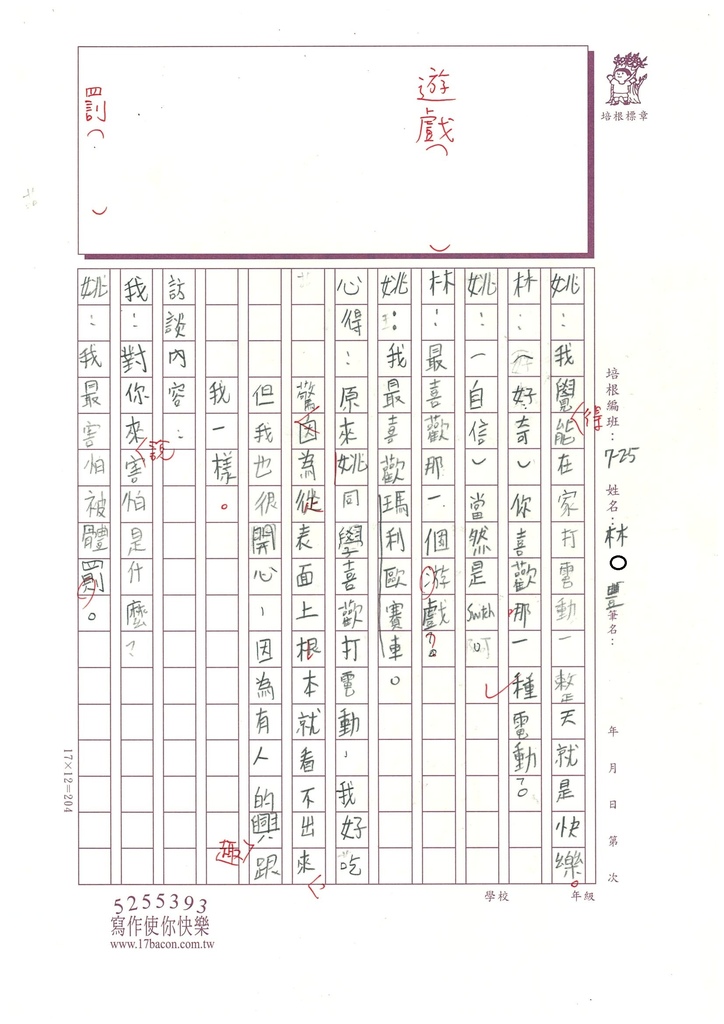 遊戲（　）
罰（　）
培根標章
培根編班：7-25 姓名：林〇豐 筆名： 年 月 日 第 次
姚：我覺能在家打電動一整天就是快樂。
得
林：（好奇）你喜歡哪一種電動？
姚：（自信）當然是Switch啊
林：最喜歡那一個游戲？
姚：我最喜歡瑪利歐賽車。
心得：原來姚同學喜歡打電動，我好吃
驚因為從表面上根本就看不出來，
但我也很開心，因為有人的興跟
趣
我一樣。
訪談內容：
我：對你來害怕是什麼？
說
姚：我最害怕被體罰。
學校 年級
17×12=204
5255393
寫作使你快樂
www.17bacon.com.tw